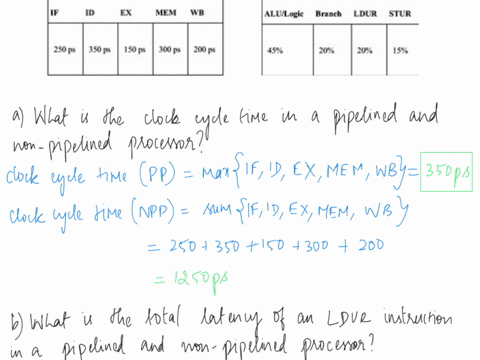 IF ID EX MEM WB
250 ps 350 ps 150 ps 300 ps 200 ps
ALU/Logic Branch LDUR STUR
45% 20% 20% 15%
a) What is the clock cycle time in a pipelined and
non-pipelined processor?
Clock cycle time (PP) = max{IF, ID, EX, MEM, WB} = 350ps
Clock cycle time (NPP) = sum{IF, ID, EX, MEM, WB}
= 250 + 350 + 150 + 300 + 200
= 1250ps
b) What is the total latency of an LDUR instruction
in a pipelined and non-pipelined processor?